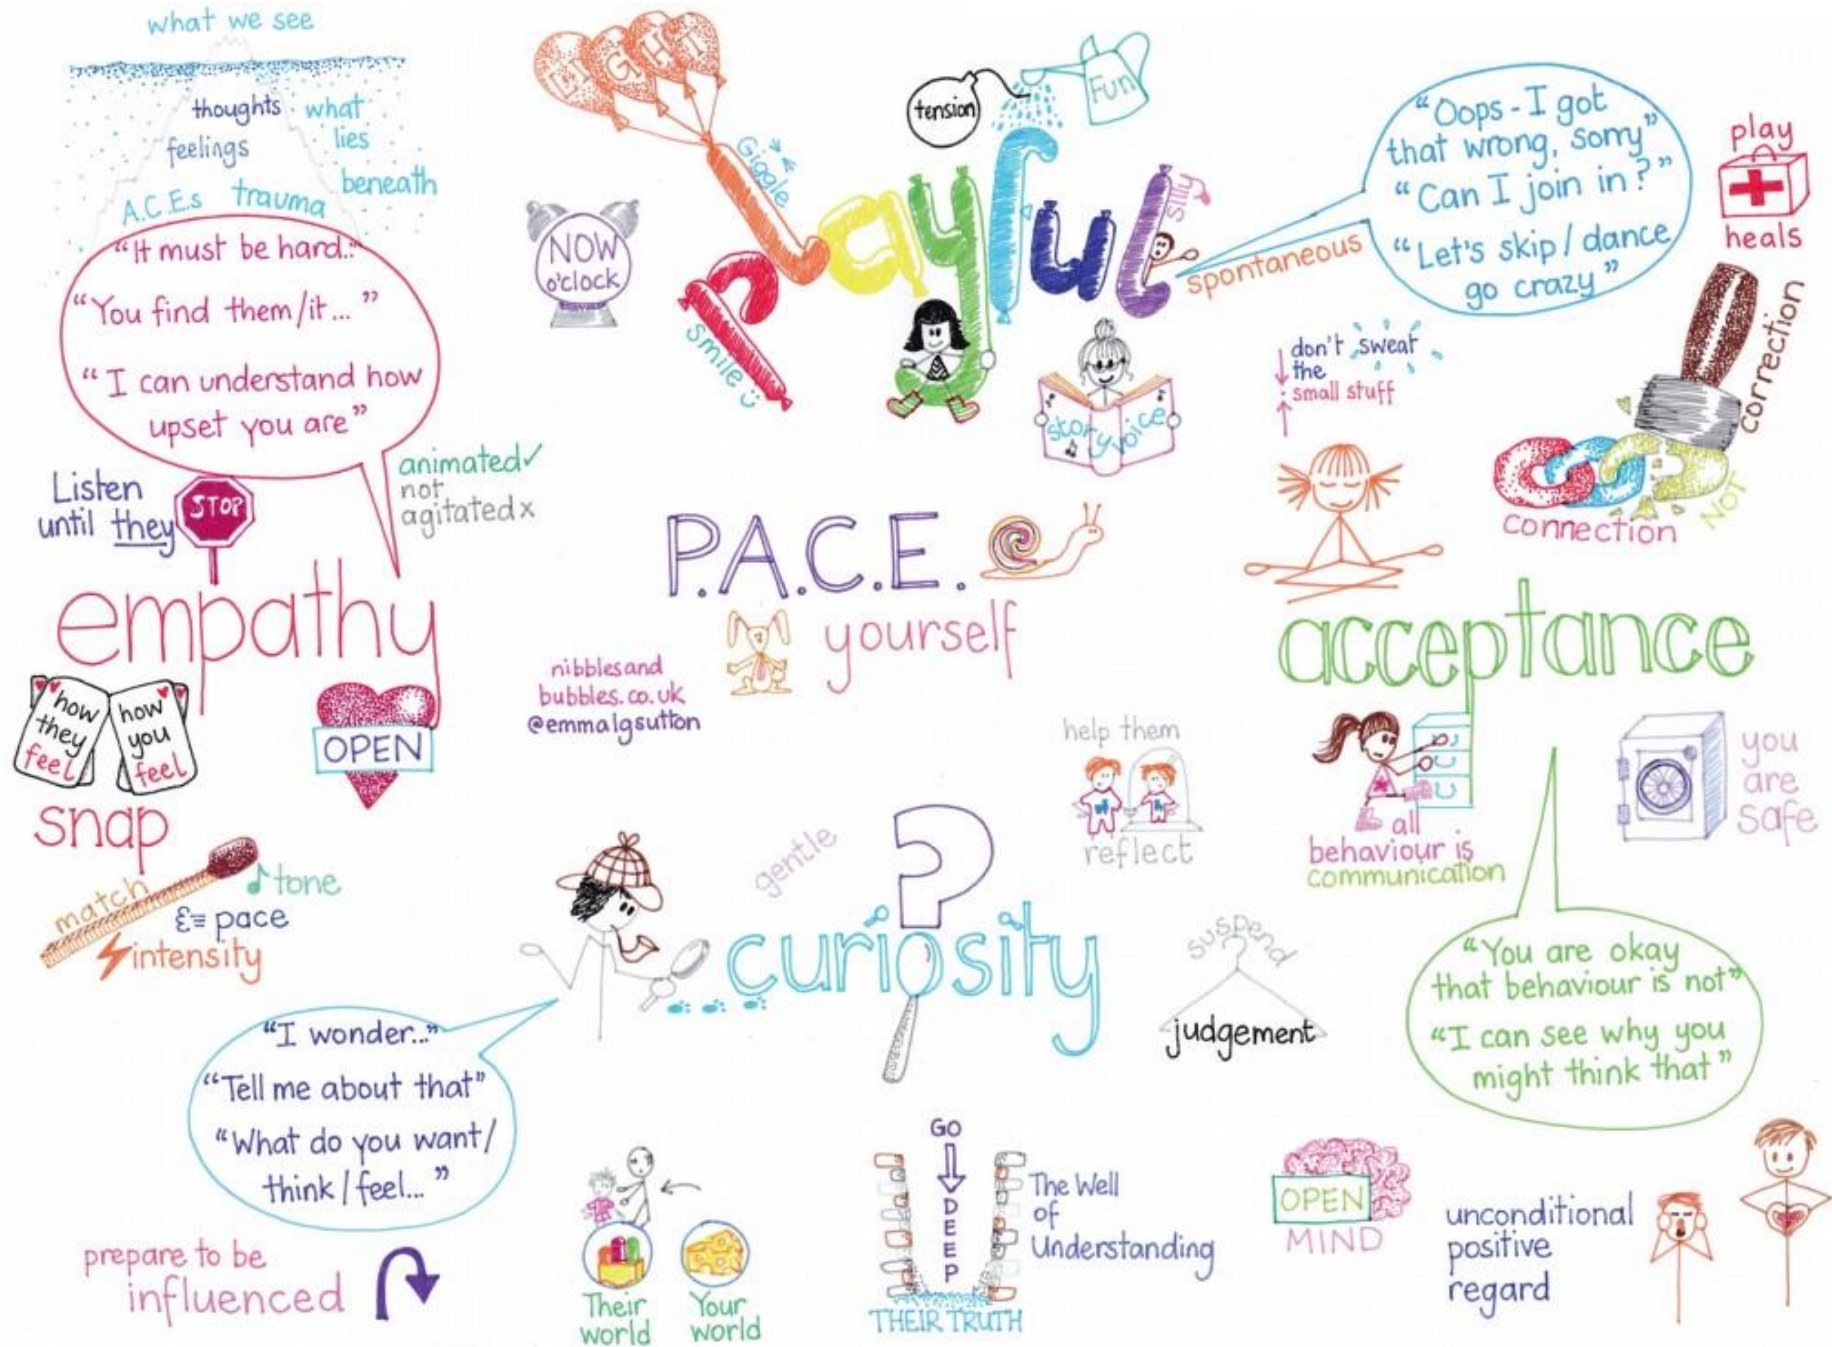 what we see
thoughts
feelings
what
lies
beneath
A.C.E.s trauma
"It must be hard.."
"You find them/it..."
"I can understand how
upset you are"
Listen
until they
STOP
animated✓
not
agitated x
empathy
how
they
feel
how
you
feel
snap
OPEN
match
tone
pace
intensity
LIGHT
Giggle
tension
Fun
NOW
o'clock
Playful
smile
silly
spontaneous
story voice
"Oops - I got
that wrong, sorry"
"Can I join in?"
"Let's skip / dance
go crazy"
play
heals
don't sweat
the
small stuff
correction
connection
NOT
P.A.C.E.
yourself
nibblesand
bubbles.co.uk
@emmalgsutton
acceptance
all
behaviour is
communication
you
are
safe
"You are okay
that behaviour is not"
"I can see why you
might think that"
help them
reflect
gentle
?
curiosity
suspend
judgement
"I wonder..."
"Tell me about that"
"What do you want/
think / feel... "
prepare to be
influenced
Their
world
Your
world
GO
DEEP
The Well
of
Understanding
THEIR TRUTH
OPEN
MIND
unconditional
positive
regard